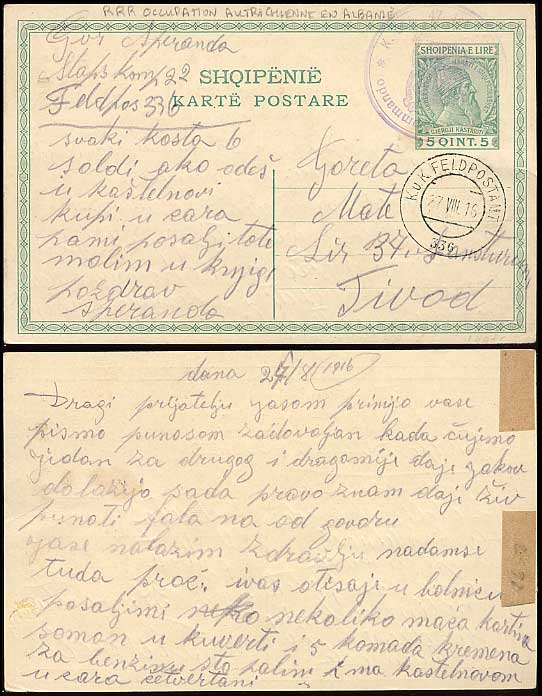 RRR OCCUPATION AUTRICHIENNE EN ALBANIE
SHQIPËNIË
KARTË POSTARE
SHQIPENIA·E LIRE
GJERGJ KASTRIOTI
5 QINT. 5
K.u.K. FELDPOSTAMT
27 VIII. 16
336
Speranda
Etaps kom 22
Feldpos 336
svaki kosta 6
soldi ako odeš
u kaštelnovi
kupi u cara
pami posalji tote
molim u knjigi
pozdrav
Speranda
Goreta
Mate
Lir 34.
Tivod
dana 27/8 1916
Dragi prijatelju jasom primijo vase
pismo punosom zadovoljan kada čujemo
jedan za drugog i dragomije daje zakon
dolazijo sada pravo znam daje živ
punoti fala na od govoru
jase nalazim zdravlju nadamse
tuda proć. ivas otisaje u bolnicu
posaljimi neko nekoliko maća kartina
soman u kuverti i 5 komada kremena
za benzinu sto palim i ma kastelnovom
u cara četvertani